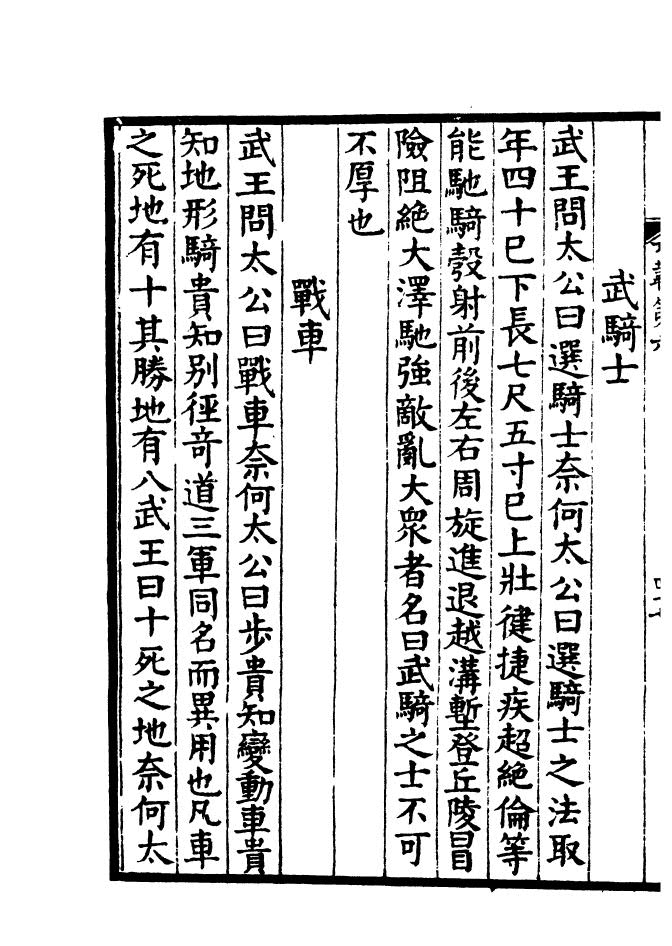 武騎士
武王問太公曰選騎士奈何太公曰選騎士之法取
年四十已下長七尺五寸已上壯健捷疾超絶倫等
能馳騎彀射前後左右周旋進退越溝塹登丘陵冒
險阻絶大澤馳強敵亂大衆者名曰武騎之士不可
不厚也
戰車
武王問太公曰戰車奈何太公曰步貴知變動車貴
知地形騎貴知别徑奇道三軍同名而異用也凡車
之死地有十其勝地有八武王曰十死之地奈何太